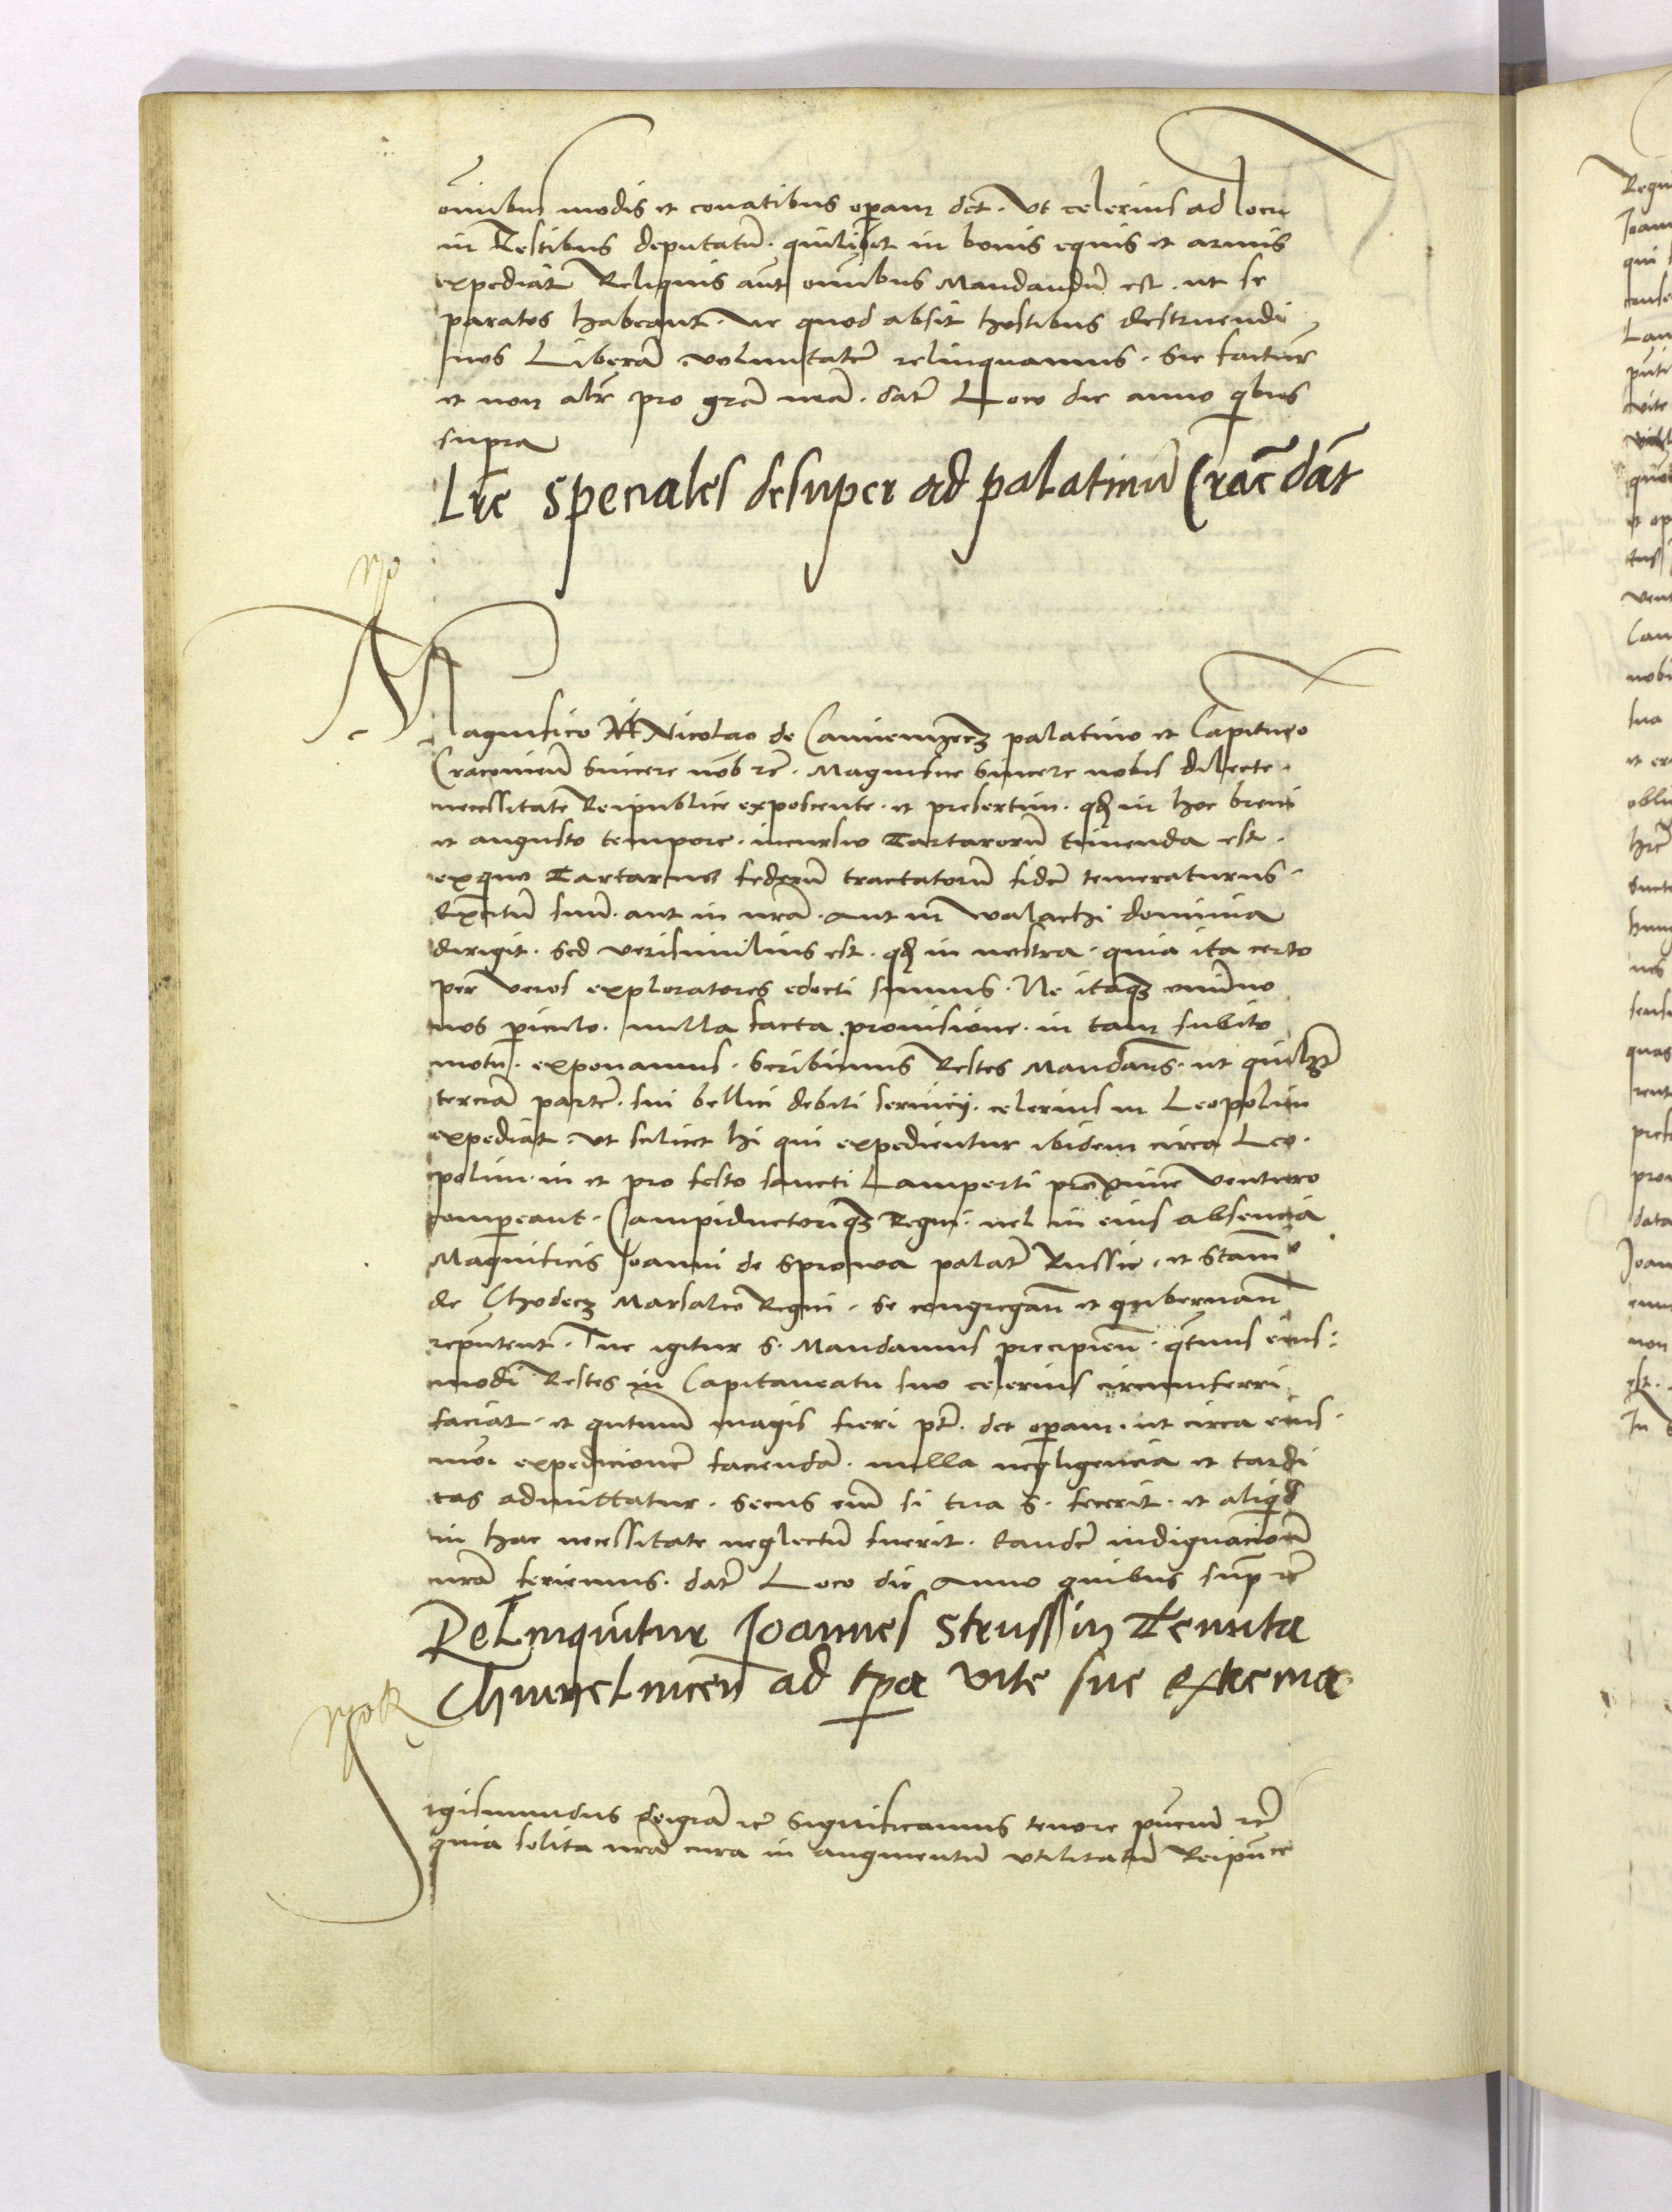 om̄ibus modis et conatibus operam det. Ut celerius ad locū
in Restibus deputatū. quilibet in bonis equis et armis
expediat Reliquis aūt om̄ibus Mandandū est. ut se
paratos habeant. ne quod absit hostibus destruendi
nos Liberā voluntatē relinquamus. Sic facturus
et non alr̄ pro grā nrā. dat̄ Loco die anno qbus
supra
Lrē speciales desuper ad palatinū Crac̄ dāt
Magnifico Nicolao de Camienyecz palatino et Capitaneo
Cracouien̄ Sincere nob̄ rc̄. Magnifice Sincere nobis dilecte.
necessitate Reipublice exposcente. et presertim. qd in hoc breui
et angusto tempore. incursio Tartarorū timenda est.
exquo Tartarus federū tractatorū fidē temeraturus.
Exercitū suū. aut in nrā. aut in walachi dominia
dirigit. sed verisimilius est. qd in nostra. quia ita certo
per veros exploratores edocti sumus. Ne itaq3 omnino
nos periculo. nulla facta prouisione. in tam subito
motu. exponamus. Scribimus Restes Mandan̄s. ut quilibet
terciā partē. sui bellici debiti seruicij. celerius in Leopolim
expediat ut scilicet hi qui expedientur ibidem circa Leo-
polim. in et pro festo sancti Lamperti proxime venturo
compareant. Campiductoriq3 Regni. vel in eius absencia
Magnificis Joanni de Sprowa palat̄ Russie. et Stanislao
de Chodecz Marsalco Regni. se congregan̄ et gubernan̄
reputent. Tue igitur S. Mandamus precipien̄. qtenus eius-
modi Restes in Capitaneatu suo celerius circumferri
faciat. et quantum magis fieri pt̄. det operam. ut circa eius-
modi expedicionē faciendā. nulla negligencia et tardi
tas admittatur. Secus em̄ si tua S. fecerit. et aliqd
in hac necessitate neglectū fuerit. Eandē indignacionē
nrā feriemus. dat̄ Loco die Anno quibus supra rc̄
Relinquitur Joannes Struss in Tenuta
Chmyelnicen̄ ad tpa vite sue extrema
Sigismundus dei grā rc̄ Significamus tenore pn̄cium rc̄
quia solita nrā cura in augmentū utilitatum Reipub̄ce